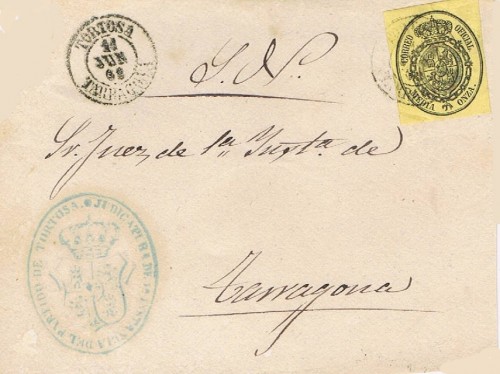 TORTOSA
11
JUN
TARRAGONA
CORREO OFICIAL
MEDIA ONZA
S. N.
Sr. Juez de 1ª Ynstª de
Tarragona
JUDICATURA DE 1ª INSTANCIA DEL PARTIDO DE TORTOSA.